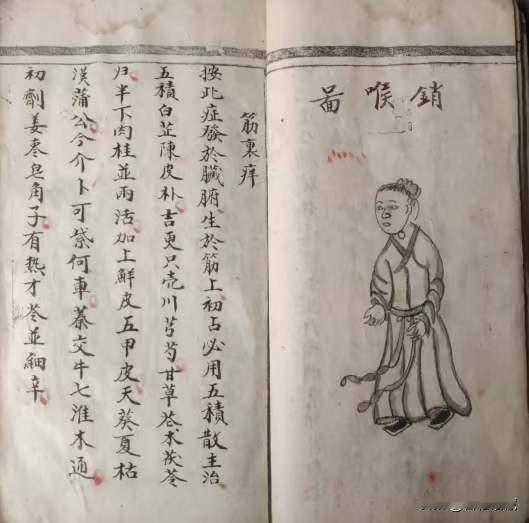 銷喉啚
筋裏痒
按此症發於臟腑生於筋上初占必用五積散主治
五積白芷陳皮朴吉更只壳川芎芍甘草苍木茯苓
归半下肉桂並兩活加上鮮皮五甲皮天葵夏枯
蒲公今介卜可紫何車蓁交牛七淮木通
初劑姜枣皂角子有热才苓並細辛